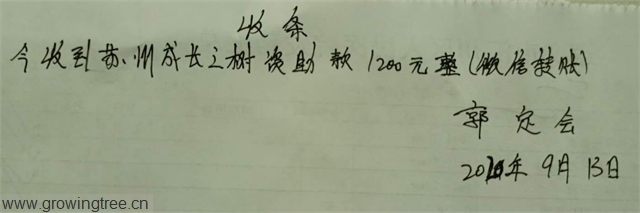 收条
今收到苏州成长之树资助款1200元整(微信转账)
郭定会
年9月13日
www.growingtree.cn